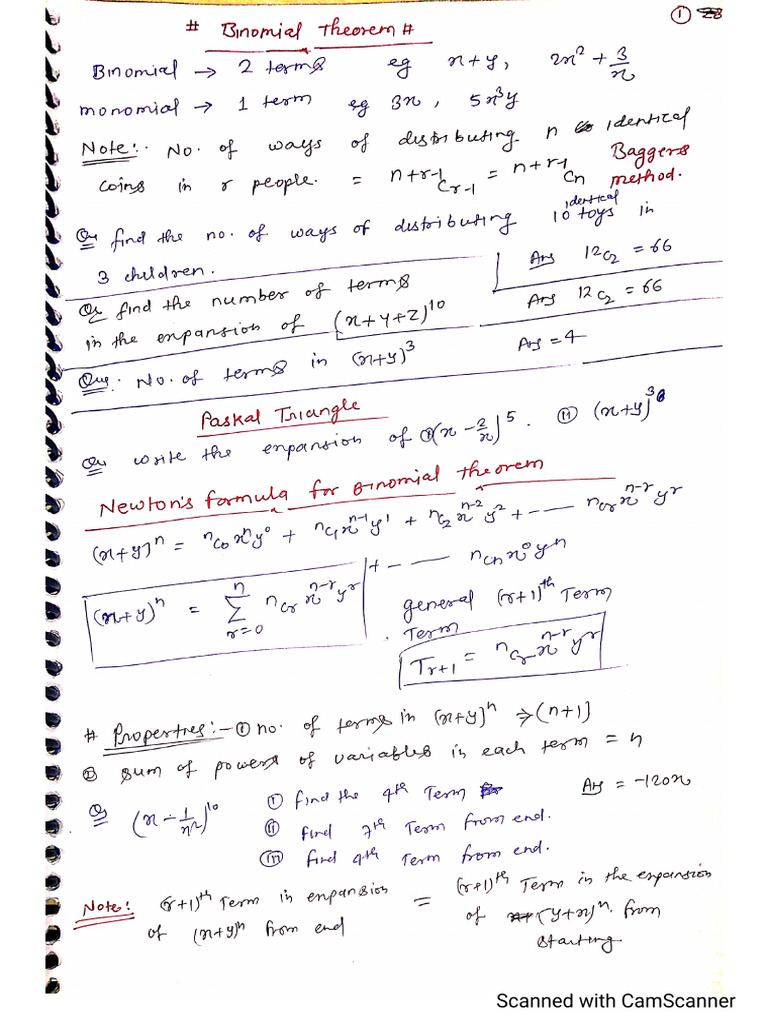 # Binomial Theorem #
① 28
Binomial → 2 terms eg x+y, 2x² + 3/x
monomial → 1 term eg 3x, 5x³y
Note:- No. of ways of distributing n identical
coins in r people. = n+r-1Cr-1 = n+r-1Cn Baggers method.
Qu find the no. of ways of distributing 10 identical toys in
3 children. Ans 12C2 = 66
Qu find the number of terms
in the expansion of (x+y+z)^10 Ans 12C2 = 66
Que. No. of terms in (x+y)³ Ans = 4
Paskal Triangle
Qu write the expansion of ① (x - 2/x)^5. ⑪ (x+y)^3
Newton's formula for Binomial theorem
(x+y)^n = nC0 x^n y^0 + nC1 x^n-1 y^1 + nC2 x^n-2 y^2 + - -- nCr x^n-r y^r
+ - -- nCn x^0 y^n
(x+y)^n = n Σ r=0 nCr x^n-r y^r
general (r+1)th Term
Term
Tr+1 = nCr x^n-r y^r
# Properties:- ① no. of terms in (x+y)^n ⇒ (n+1)
② sum of powers of variables in each term = n
Q (x - 1/x²)^10 ① find the 4th Term Ans = -120x
⑪ find 7th Term from end.
⑪I find 4th Term from end.
Note: (r+1)th Term in expansion of (x+y)^n from end = (r+1)th Term in the expansion of (y+x)^n. from starting
Scanned with CamScanner